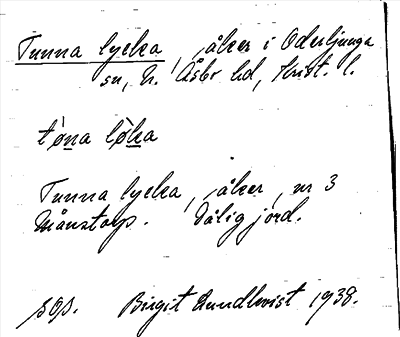 Tunna lycka, åker i Oderljunga
sn, N. Åsbo hd, Krist. l.
tò̱na lỳ̱ka
Tunna lycka, åker, nr 3
Månstorp. Dålig jord.
sop. Birgit Lundkvist 1938.